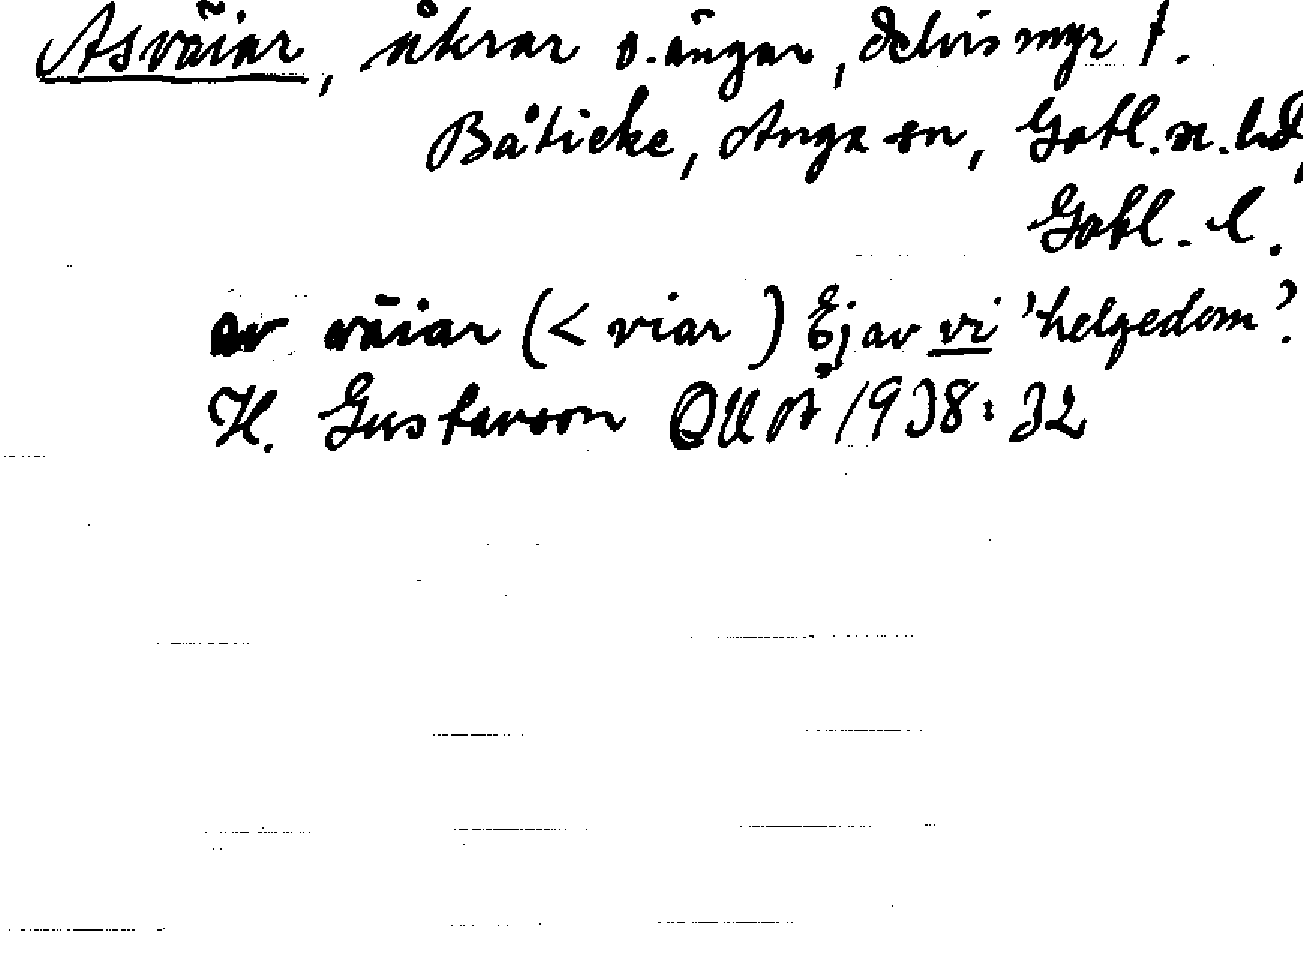 Asväiar, åkrar o. ängar, delvis myr f.
Båticke, Anga sn, Gotl. n. hd,
Gotl. l.
av väiar (< viar) Ej av vi 'helgedom'?
H. Gustavson OUÅ 1938: 32